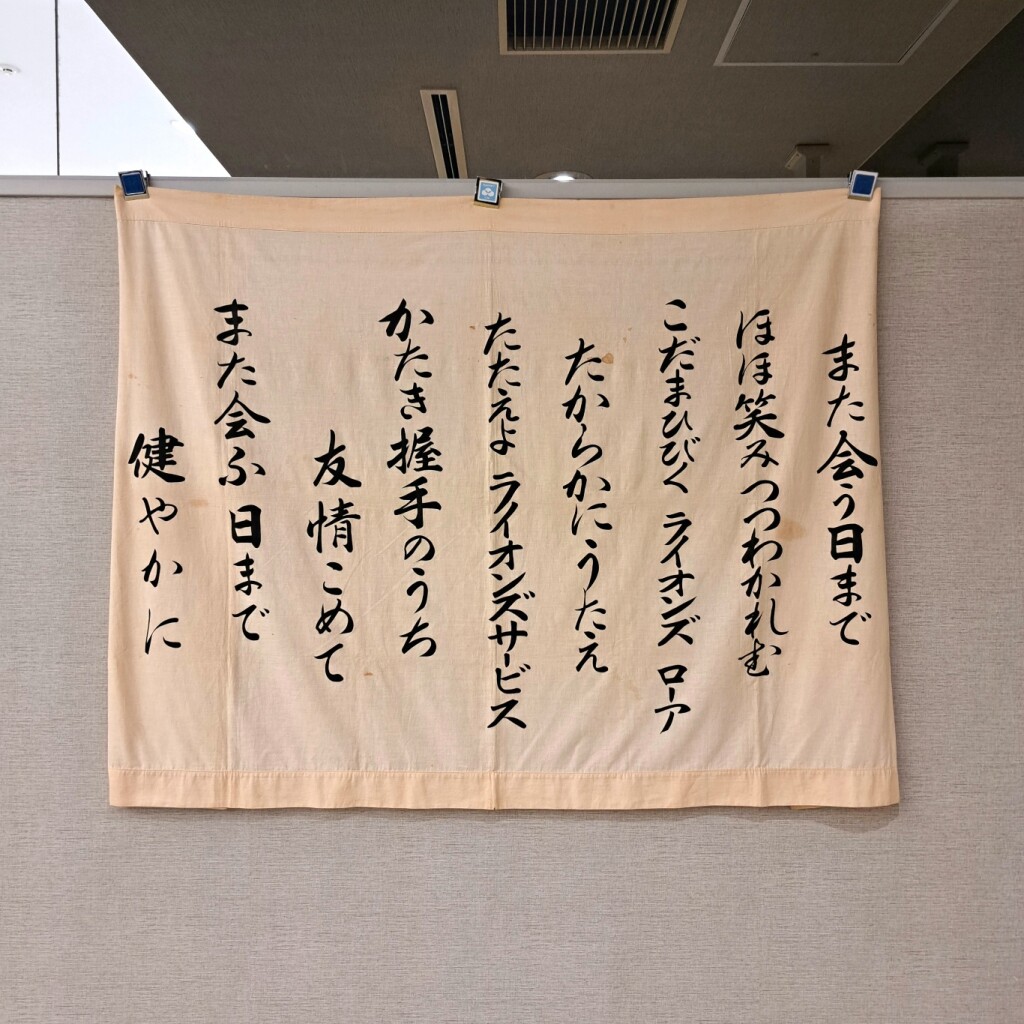 また会う日まで
ほほ笑みつつわかれむ
こだまひびく ライオンズ ローア
たからかにうたえ
たたえよ ライオンズサービス
かたき握手のうち
友情こめて
また会ふ日まで
健やかに